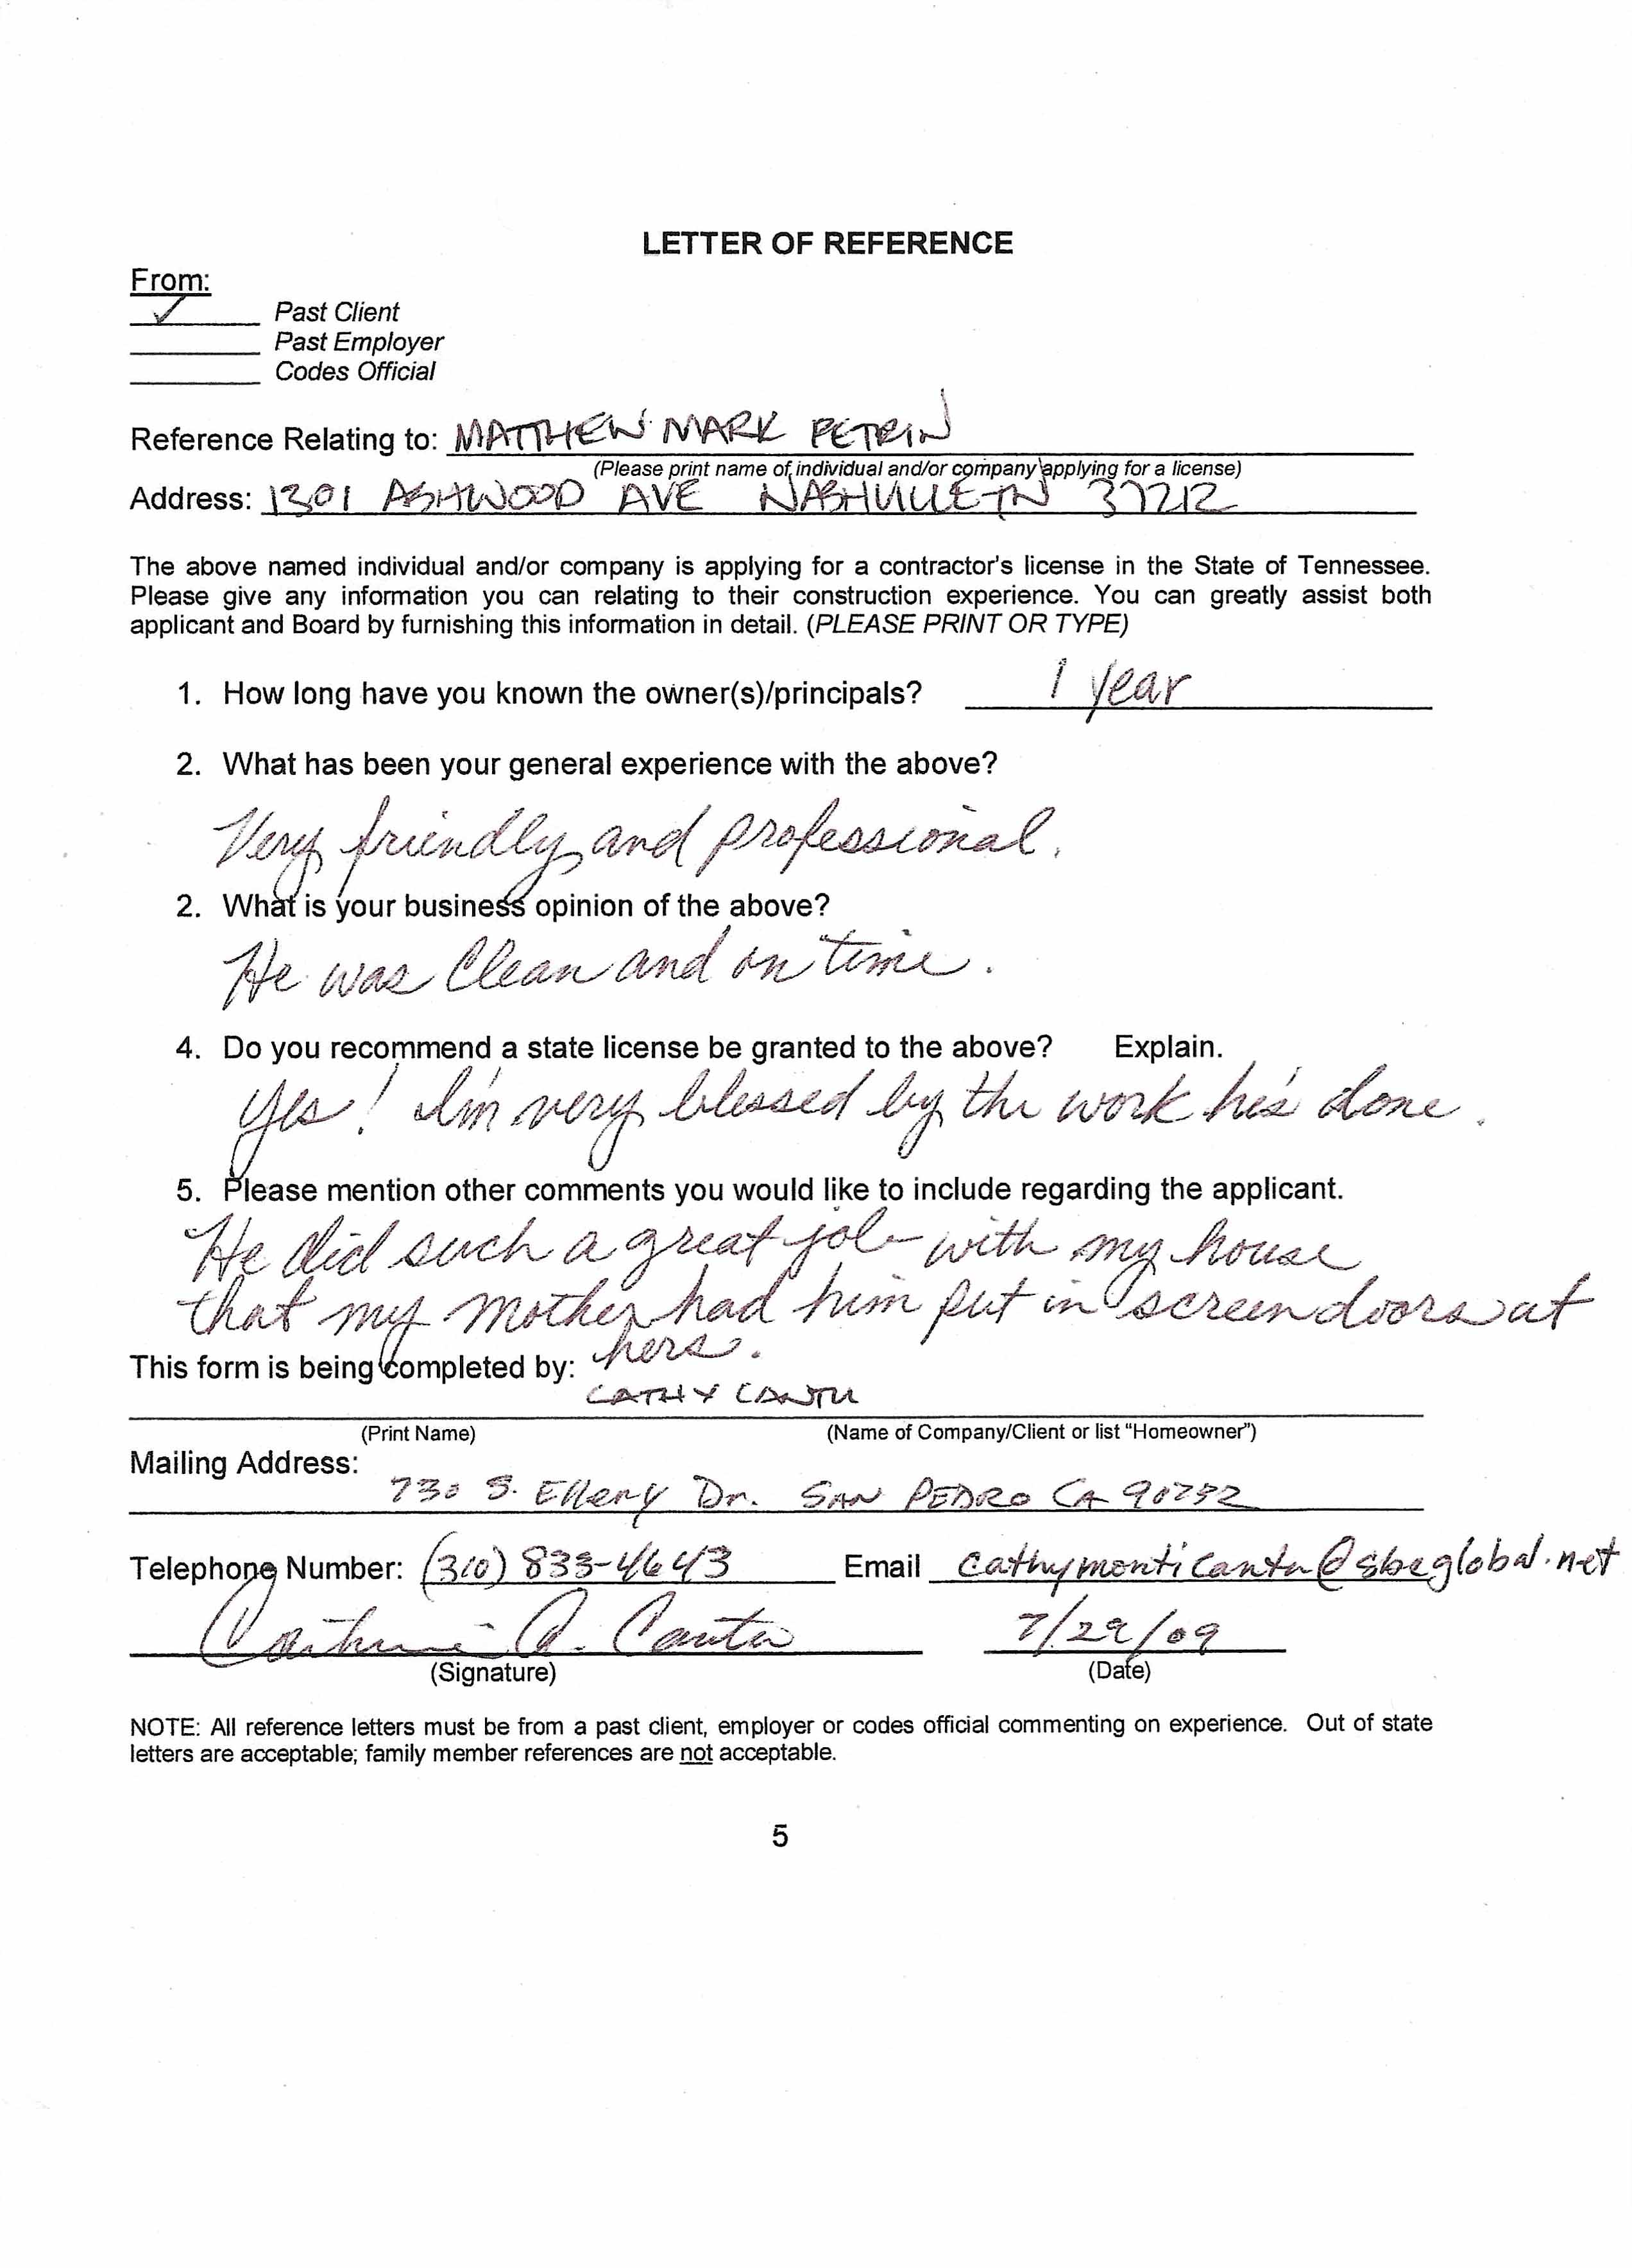 LETTER OF REFERENCE
From:
✓ Past Client
Past Employer
Codes Official
Reference Relating to: MATTHEW MARK PETRIN
(Please print name of individual and/or company applying for a license)
Address: 1301 ASHWOOD AVE NASHVILLE TN 37212
The above named individual and/or company is applying for a contractor's license in the State of Tennessee.
Please give any information you can relating to their construction experience. You can greatly assist both
applicant and Board by furnishing this information in detail. (PLEASE PRINT OR TYPE)
1. How long have you known the owner(s)/principals? 1 year
2. What has been your general experience with the above?
Very friendly and professional.
2. What is your business opinion of the above?
He was Clean and on time.
4. Do you recommend a state license be granted to the above? Explain.
Yes! I'm very blessed by the work he's done.
5. Please mention other comments you would like to include regarding the applicant.
He did such a great job with my house
that my mother had him put in screen doors at
hers.
This form is being completed by:
CATHY CANTU
(Print Name) (Name of Company/Client or list "Homeowner")
Mailing Address:
730 S. Ellery Dr. SAN PEDRO CA 90732
Telephone Number: (310) 833-4643 Email cathymonticantu@sbcglobal.net
Catherine A. Cantu 7/29/09
(Signature) (Date)
NOTE: All reference letters must be from a past client, employer or codes official commenting on experience. Out of state
letters are acceptable; family member references are not acceptable.
5